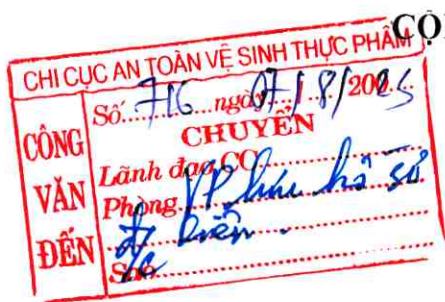 CỘ
CHI CỤC AN TOÀN VỆ SINH THỰC PHẨM
CÔNG VĂN ĐẾN
Số: 716 ngày 07/8/2025
CHUYỂN
Lãnh đạo CC
Phòng VP lưu hồ sơ